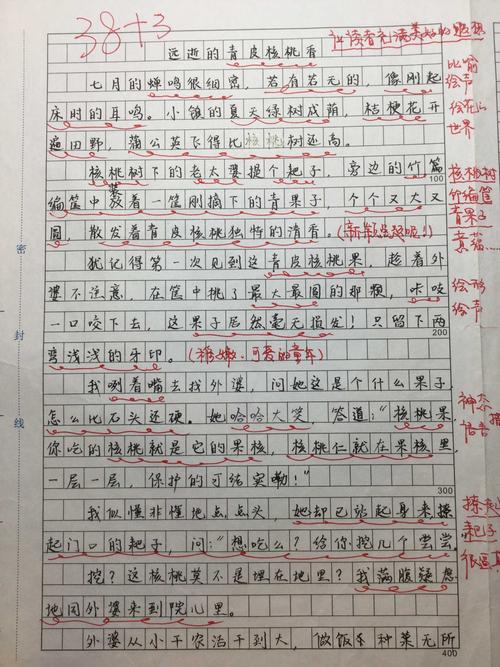 38+3
让读者充满美好的遐想
远逝的青皮核桃香
七月的蝉鸣很细密，若有若无的，像刚起
比喻
绘声
床时的耳鸣。小镇的夏天绿树成荫，桔梗花开
绘花山
世界
遍田野，蒲公英飞得比核桃树还高。
核桃树下的老太婆摸个耙子，旁边的竹篇
核桃树
100
编筐中装着一筐刚摘下的青果子，个个又大又
竹编筐
青果子
圆，散发着青皮核桃独特的清香。
犹记得第一次见到这青皮核桃果，趁着外
婆不注意，在筐中挑了最大最圆的那颗，咔咬
绘形
绘声
一口咬下去，这果子居然毫无损发！只留下两
200
弯浅浅的牙印。（稚嫩、可爱的童年）
我咧着嘴去找外婆，问她这是个什么果子，
怎么比石头还硬。她哈哈大笑 答道：“核桃果，
神态
语言
你吃的核桃就是它的果核，核桃仁就在果核里，
一层一层，保护的可结实嘞！”
300
我似懂非懂地点点头，她却已站起身来操
起门口的耙子，问：“想吃么？给你挖几个尝尝。
耙子
很逼真
挖？这核桃莫不是埋在地里？我满腹疑惑
地同外婆来到院儿里。
外婆从小干农活干到大，做饭种菜无所
400
密
封
线